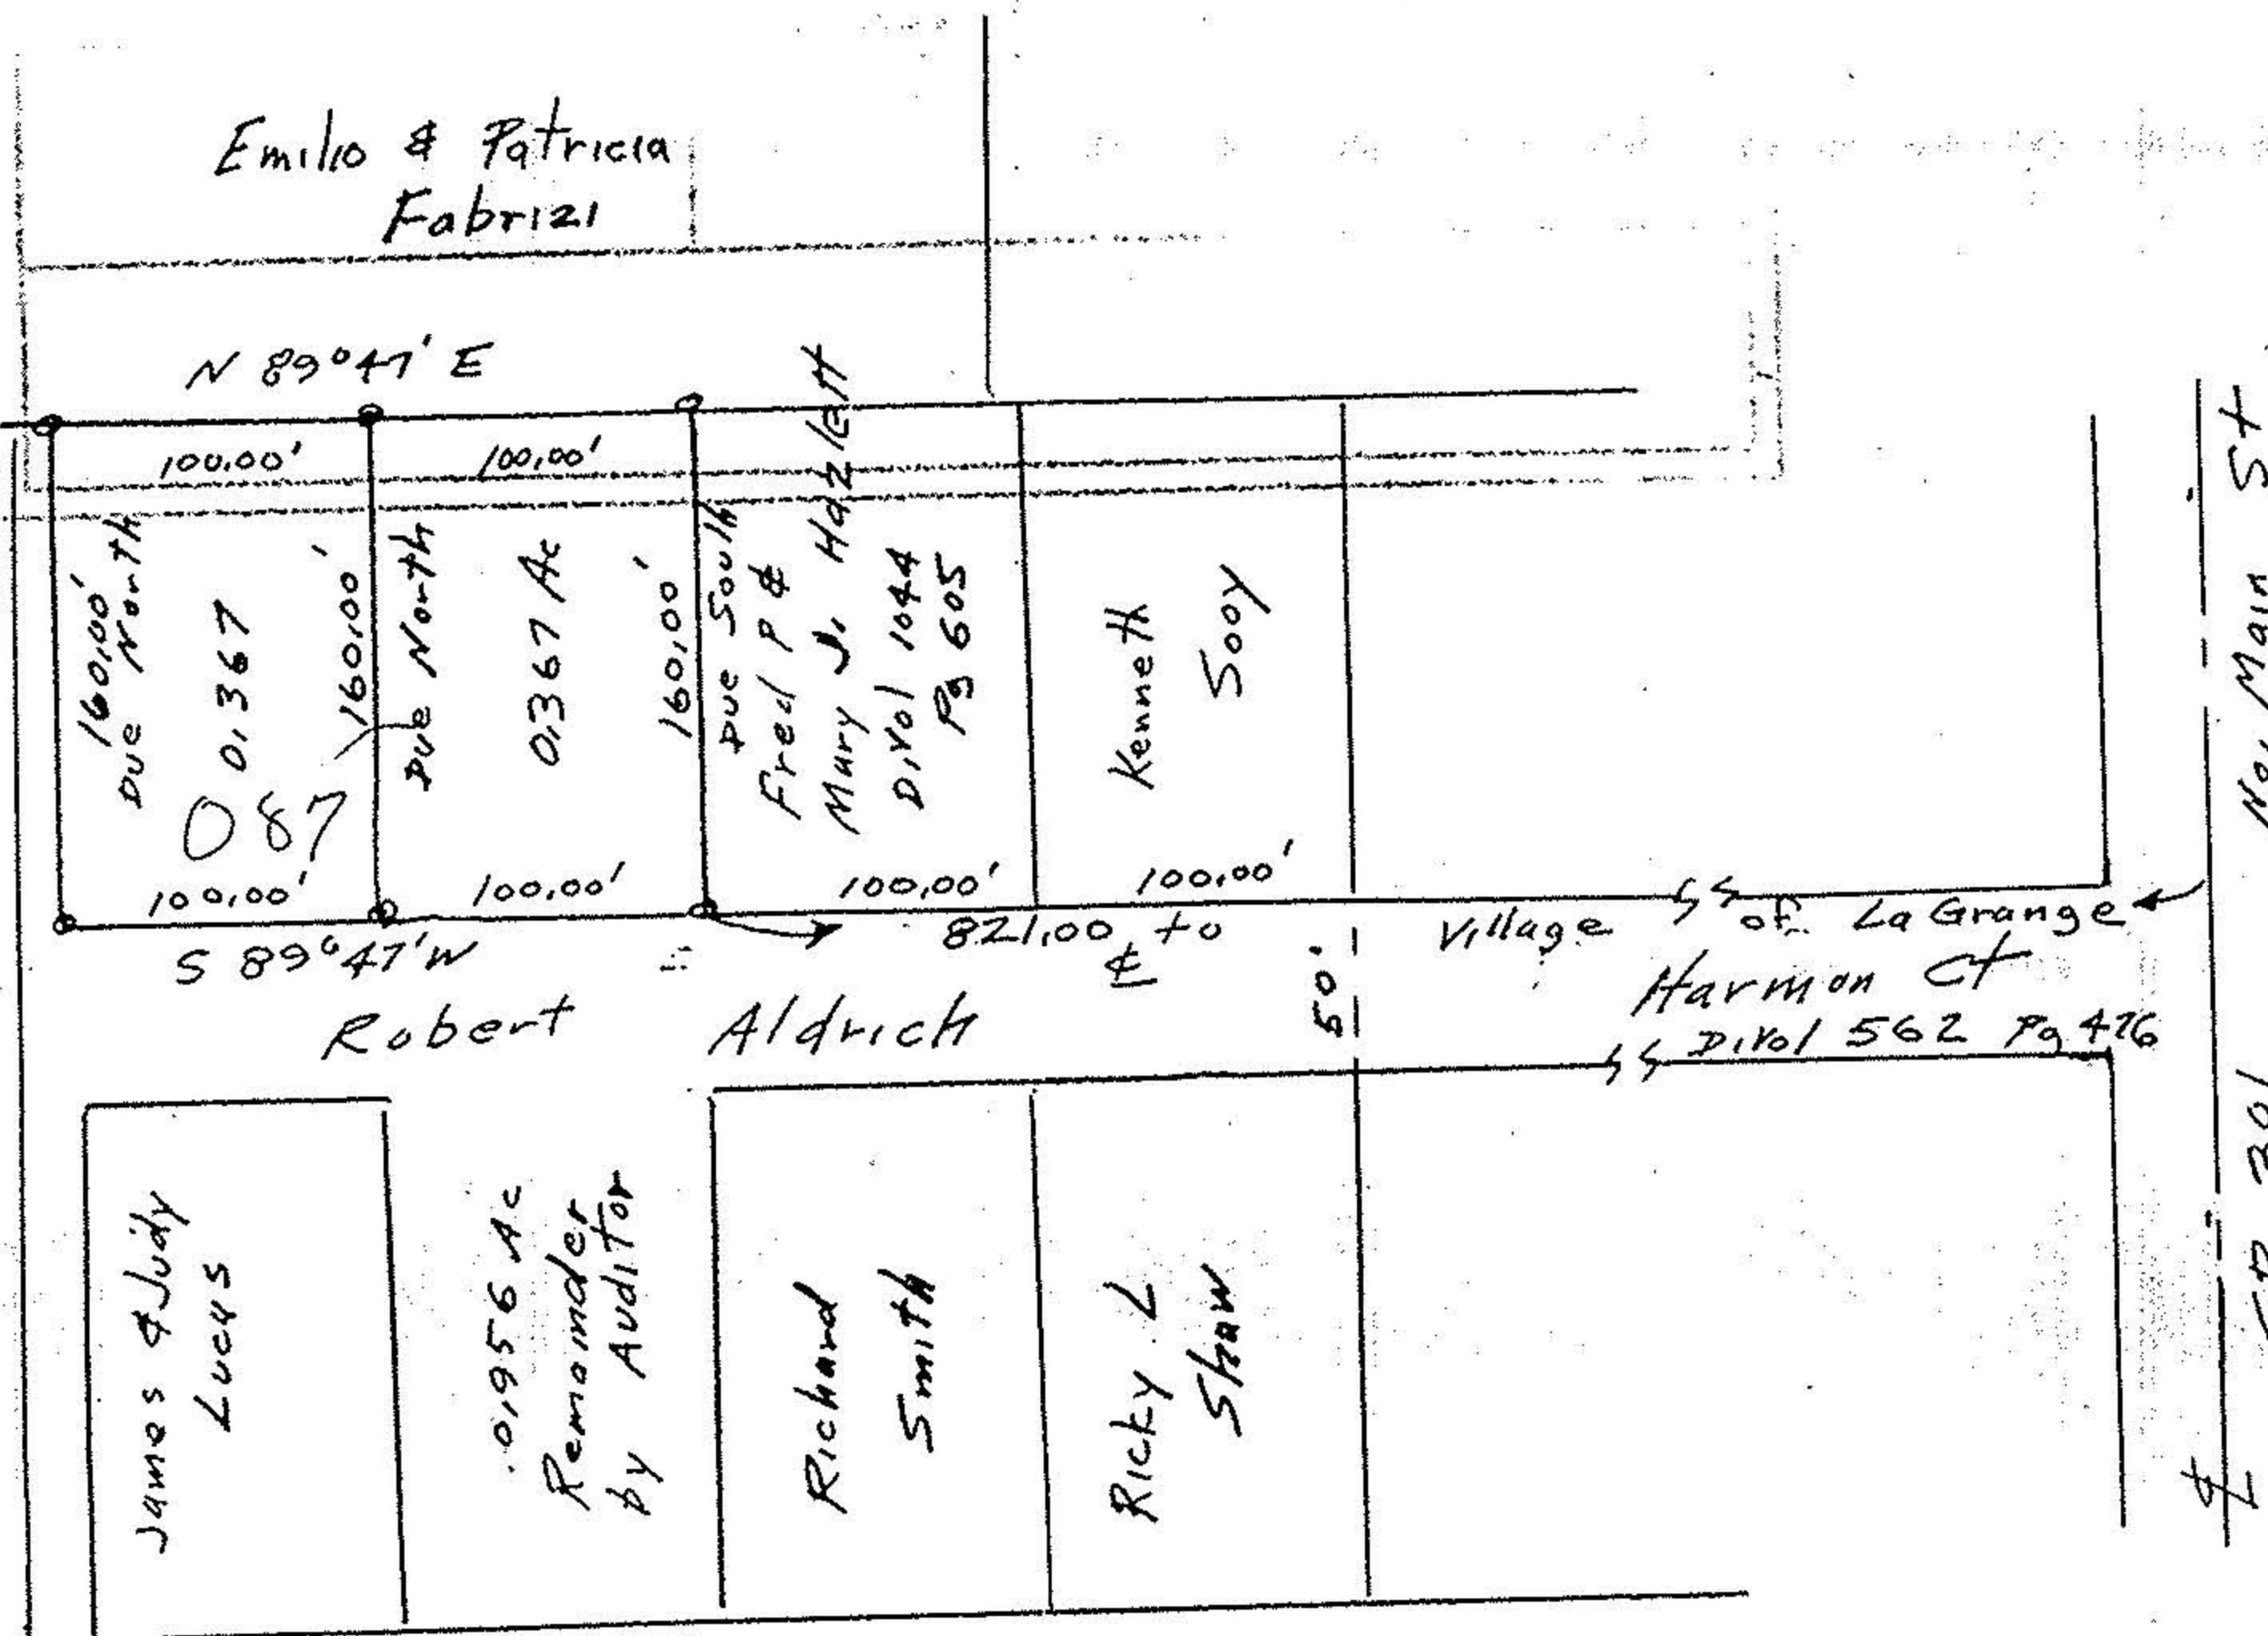 Emilio & Patricia
Fabrizi
N 89°47' E
100.00'
100.00'
160.00'
Due North
0.367
087
160.00'
Due North
0.367 Ac
160.00'
Due South
Fred P &
Mary J. Hazlett
D.Vol 1044
Pg 605
Kenneth
Sooy
100.00'
100.00'
100.00'
100.00'
S 89°47' W
821.00 to
℄
Village of LaGrange
50'
Harmon Ct
D.Vol 562 Pg 476
Robert Aldrich
James & Judy
Lucas
0.956 Ac
Remainder
by Auditor
Richard
Smith
Ricky L
Shaw
Main St
℄